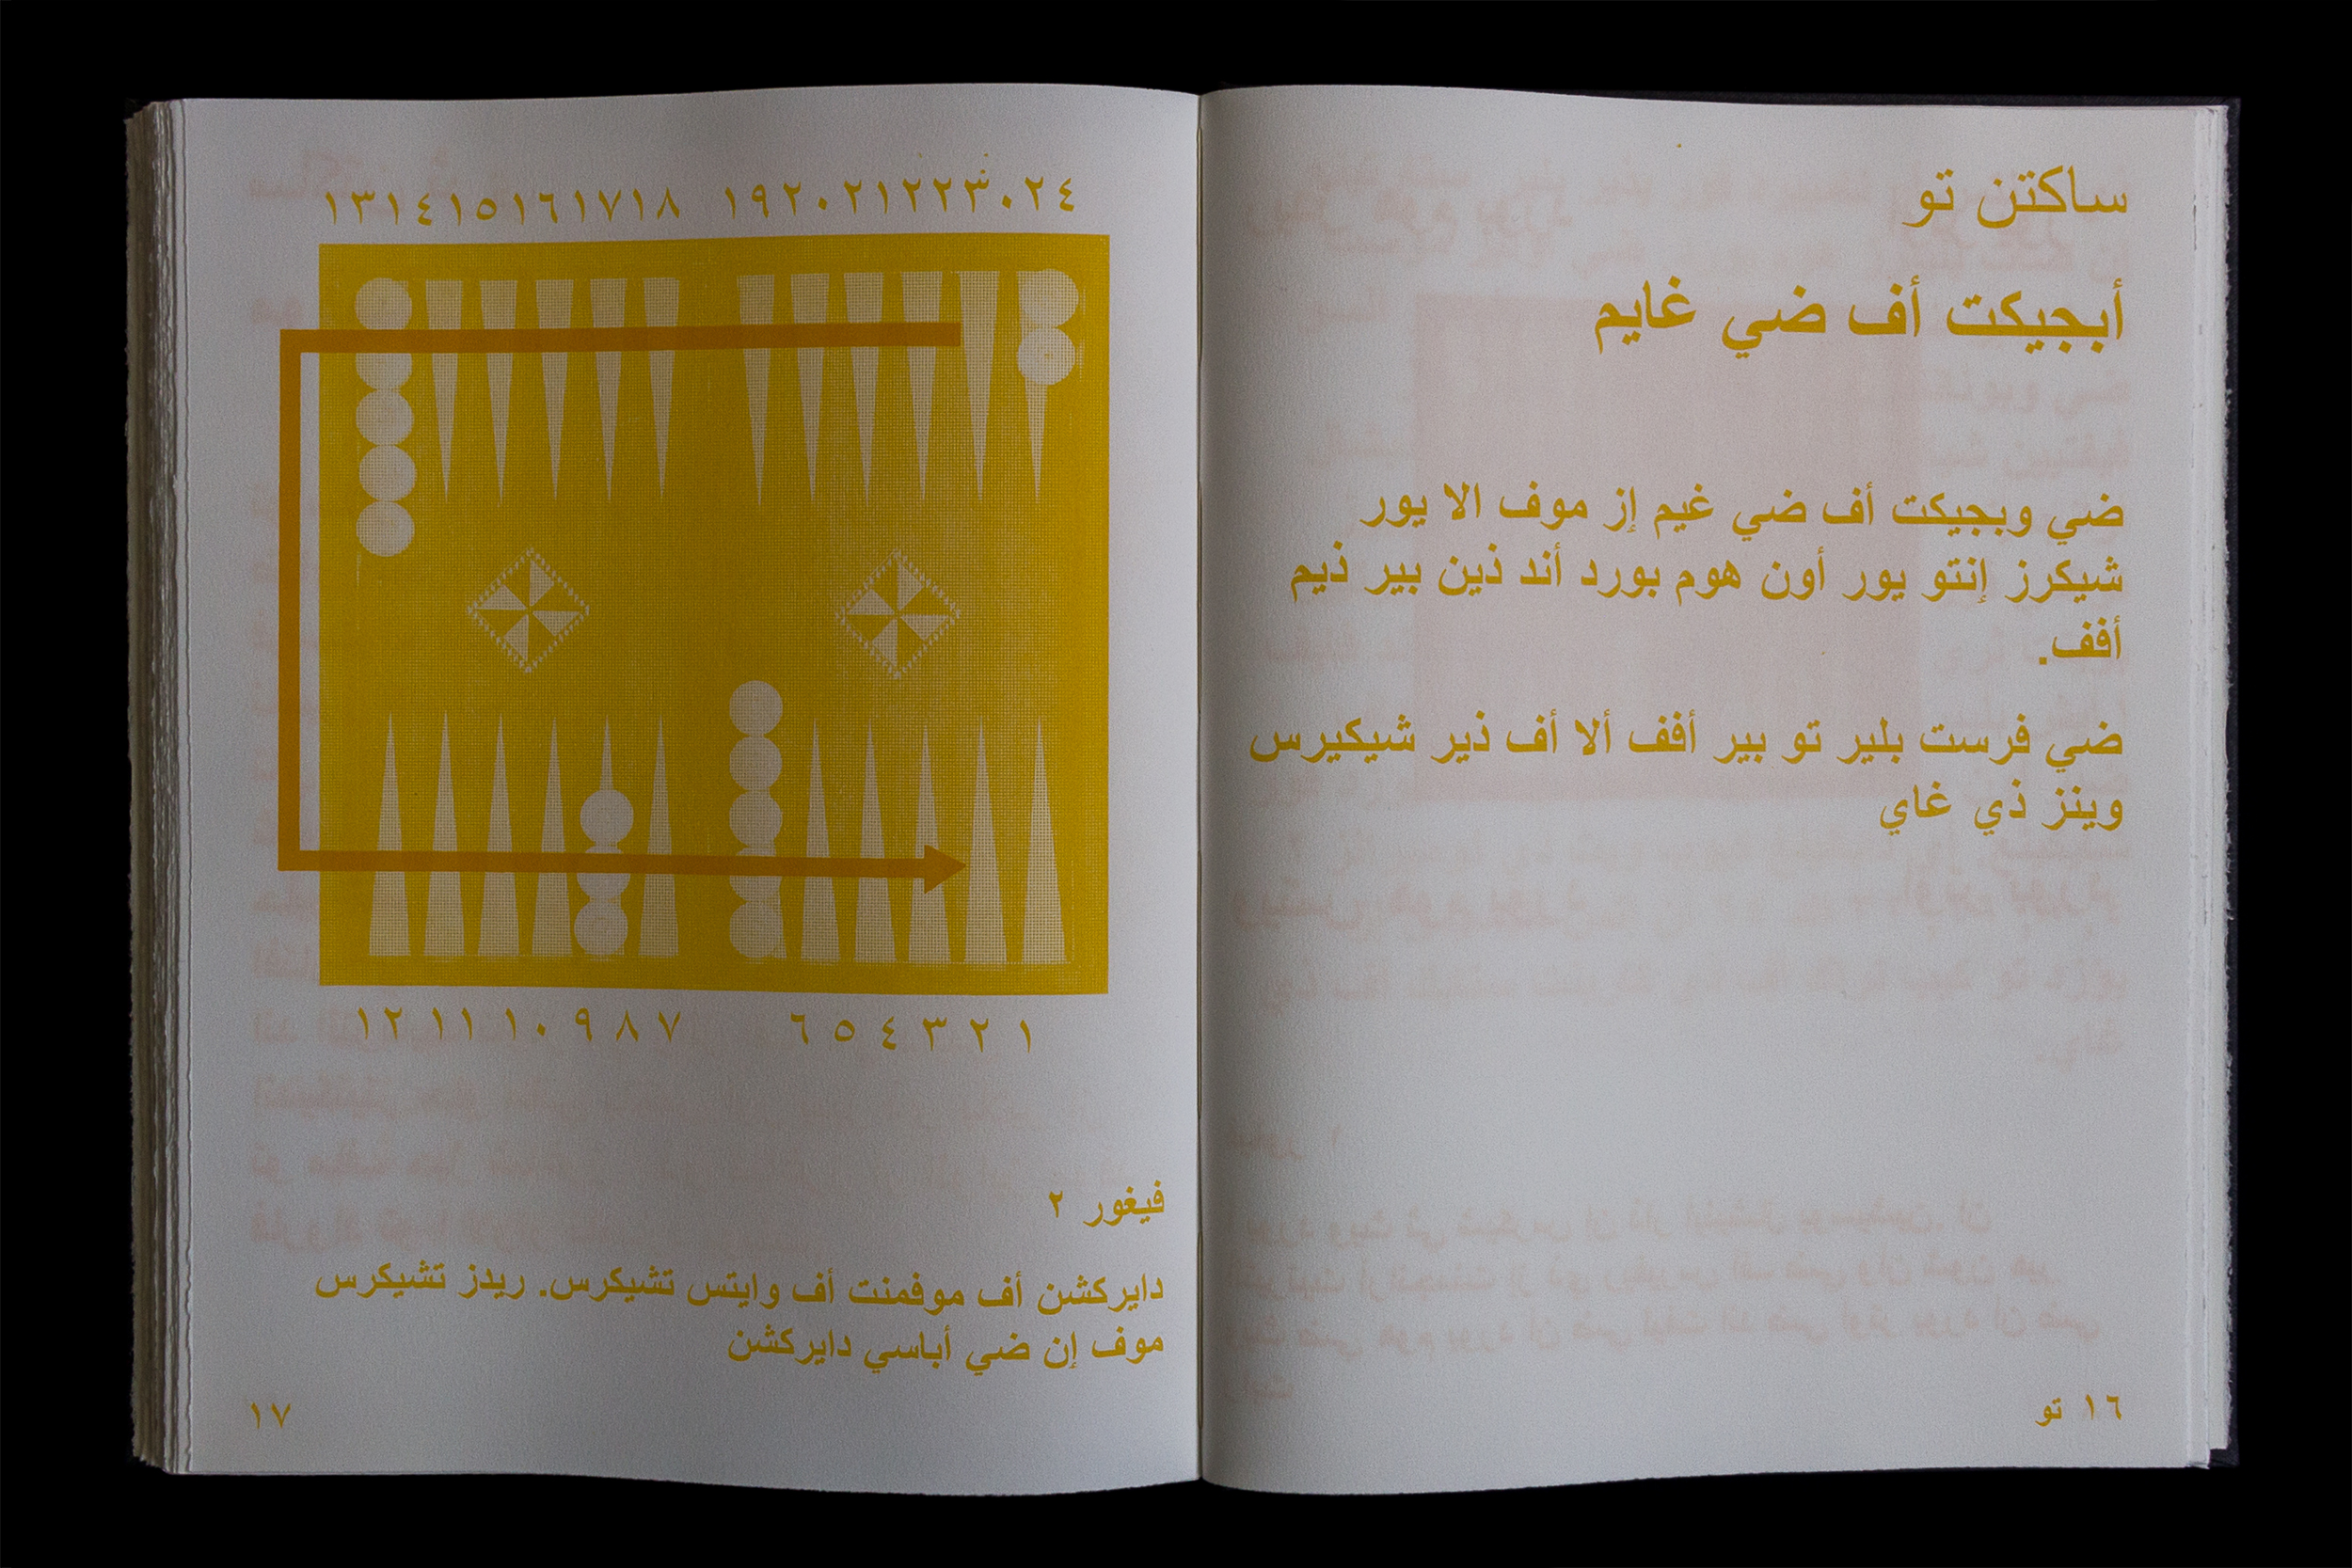 ساكتن تو
أبجيكت أف ضي غايم
ضي وبجيكت أف ضي غيم إز موف الا يور
شيكرز إنتو يور أون هوم بورد أند ذين بير ذيم
أفف.
ضي فرست بلير تو بير أفف ألا أف ذير شيكيرس
وينز ذي غاي
١٦ تو
١٣١٤١٥١٦١٧١٨ ١٩٢٠٢١٢٢٢٣٠٢٤
١٢ ١١ ١٠ ٩ ٨ ٧ ٦ ٥ ٤ ٣ ٢ ١
فيغور ٢
دايركشن أف موفمنت أف وايتس تشيكرس. ريدز تشيكرس
موف إن ضي أباسي دايركشن
١٧